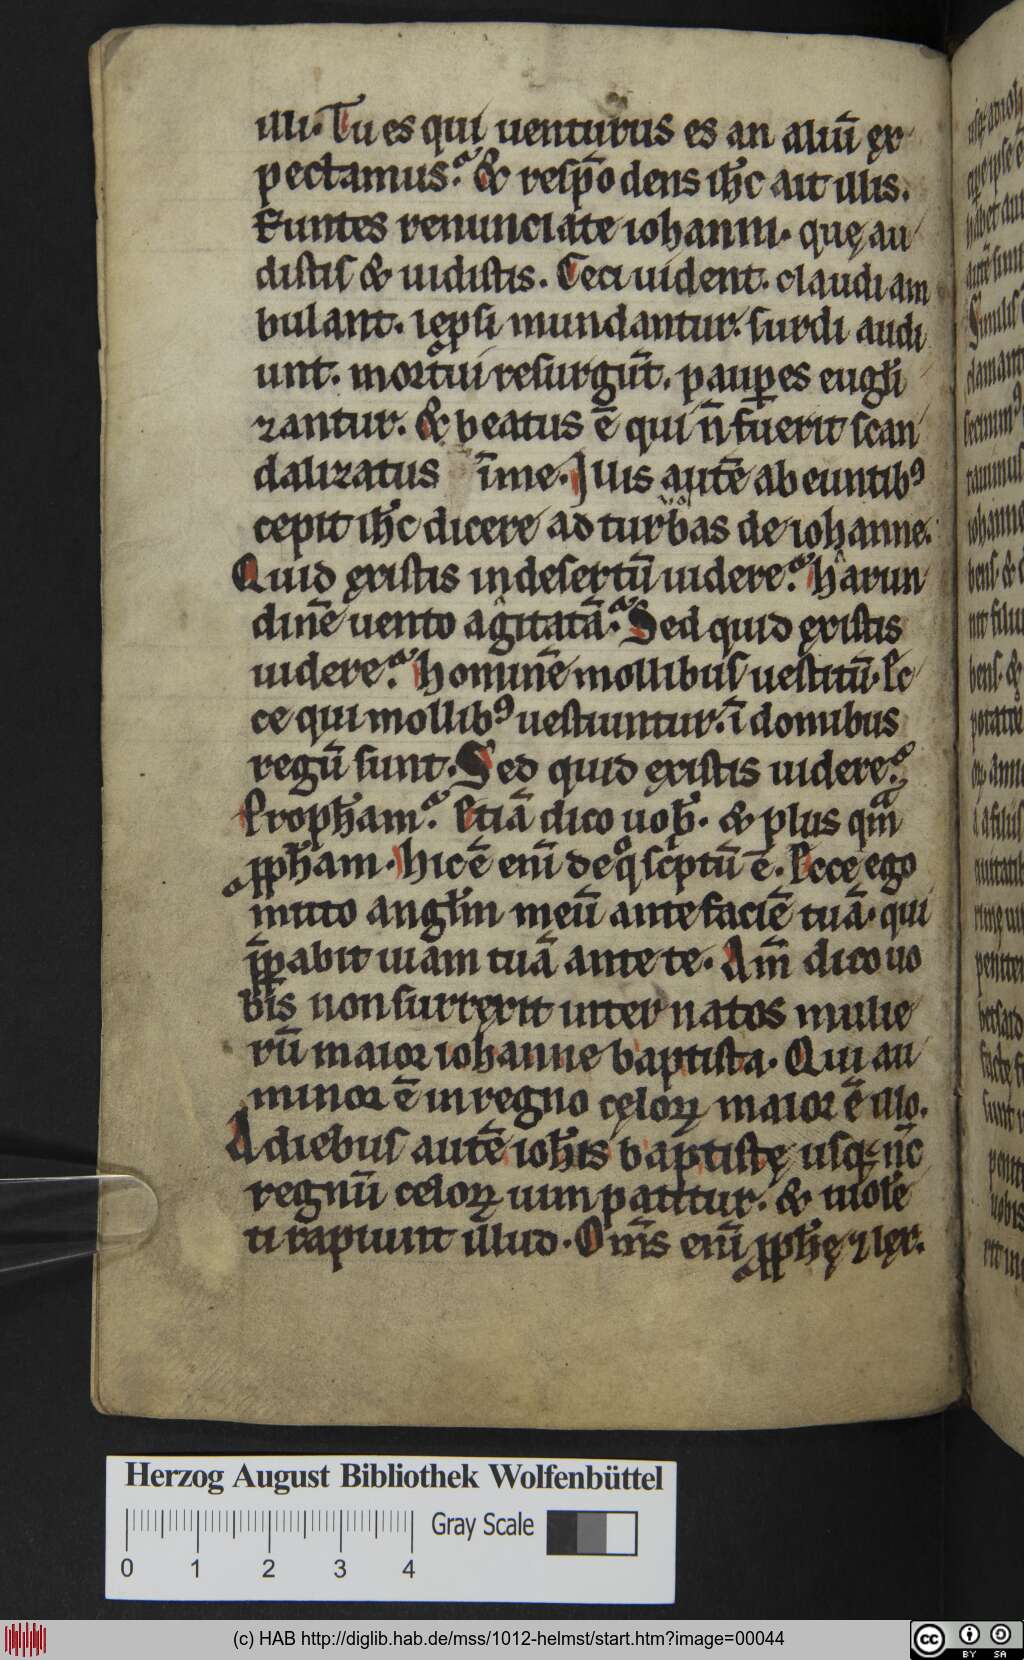 illi. Tu es qui uenturus es an aliū ex
pectamus? & respōdens ih̄c ait illis.
Euntes renunciate iohanni. quę au
distis & uidistis. Ceci uident. claudi am
bulant. lępsi mundantur. surdi audi
unt. mortui resurgūt. paup̄es eugl̄i
zantur. & beatus ē qui n̄ fuerit scan
dalizatus ī me. Illis autē abeuntibꝰ
cepit ih̄c dicere ad turbas de iohanne.
Quid existis in desertū uidere? harun
dinē uento agitatā? Sed quid existis
uidere? hominē mollibus uestitū. Ec
ce qui mollibꝰ uestiuntur. ī domibus
regū sunt. Sed quid existis uidere?
Proph̄am? Etiā dico uob̄. & plus qm̄
ꝓph̄am. hic ē enī de qͦ scͥptū ē. Ecce ego
mitto angl̄m meū ante faciē tuā. qui
p̄parabit uiam tuā ante te. Am̄ dico uo
bis non surrexit inter natos mulie
rū maior iohanne baptista. Qui au
minor ē in regno cęloꝝ maior ē illo.
A diebus autē ioh̄is baptistę usqꝫ nc̄
regnū celoꝝ uim patitur. & uiolē
ti rapiunt illud. Om̄s enī ꝓph̄ę ⁊ lex.
Herzog August Bibliothek Wolfenbüttel
Gray Scale
0 1 2 3 4
(c) HAB http://diglib.hab.de/mss/1012-helmst/start.htm?image=00044
cc BY SA